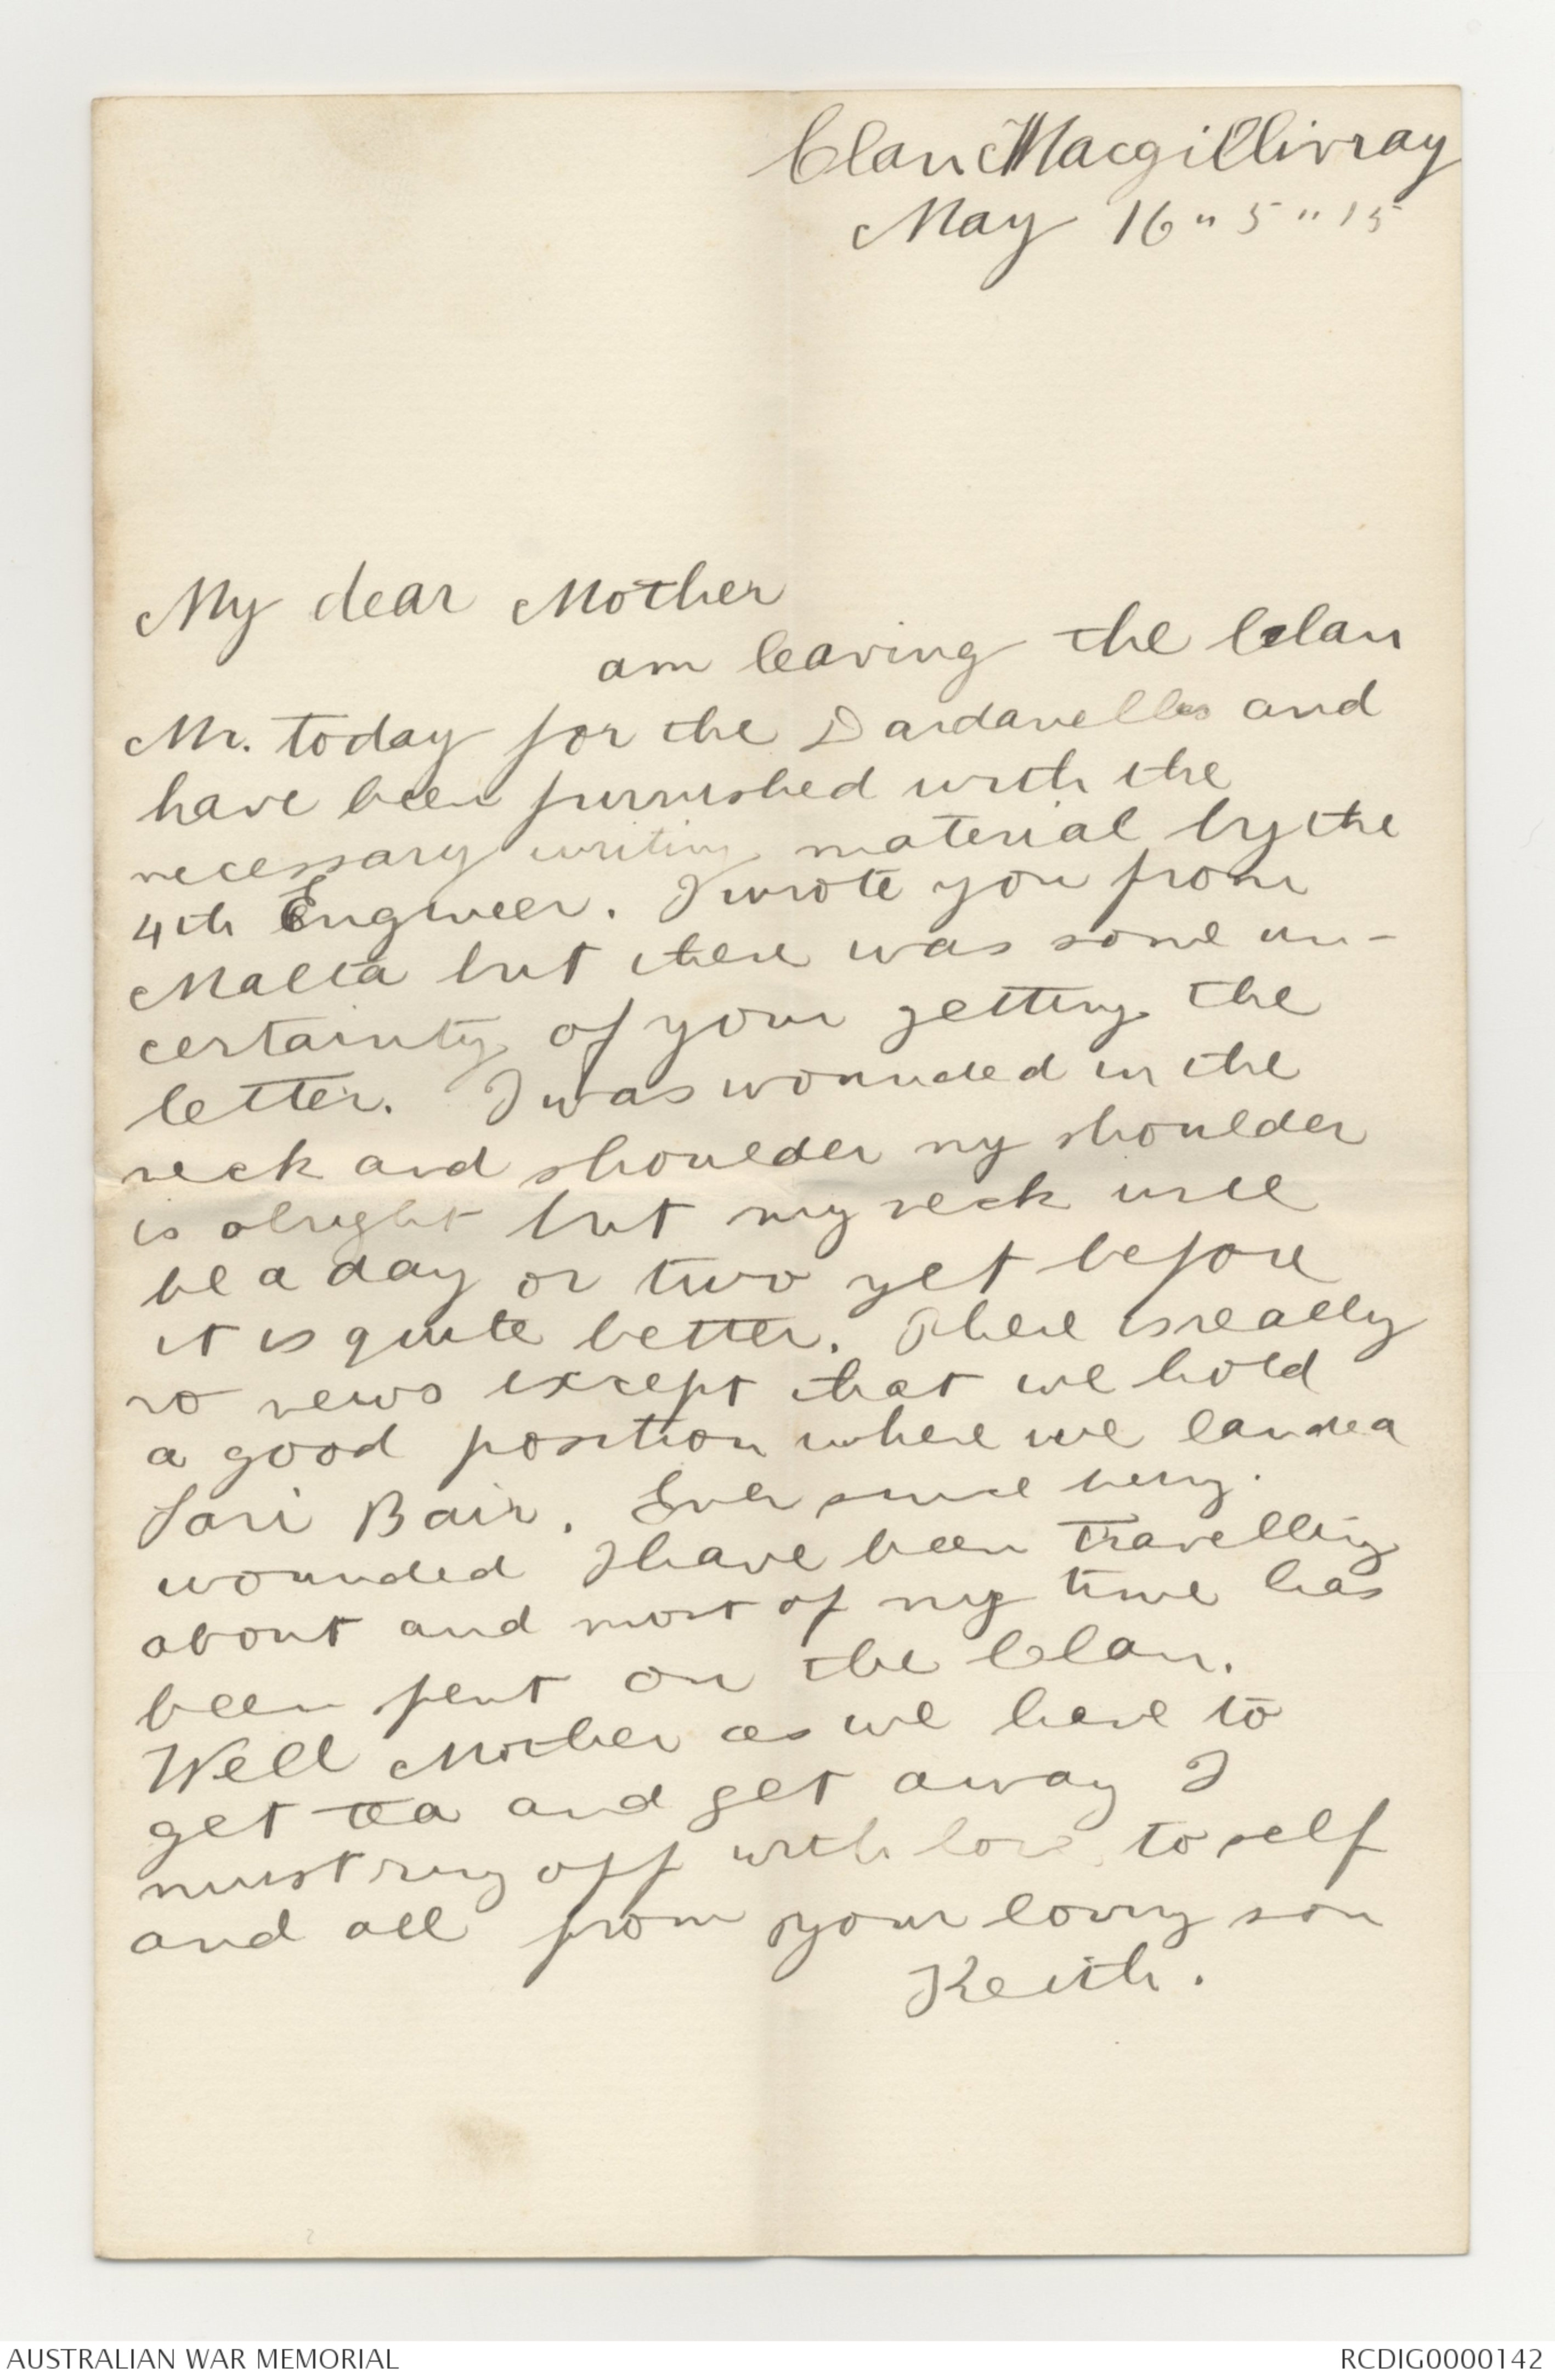 Clan Macgillivray
May 16 " 5 " 15
My dear Mother
am leaving the Clan
Mr. today for the Dardanelles and
have been furnished with the
necessary writing material by the
4th Engineer. I wrote you from
Malta but there was some un-
certainty of your getting the
letter. I was wounded in the
neck and shoulder my shoulder
is alright but my neck will
be a day or two yet before
it is quite better. There is really
no news except that we hold
a good position where we landed
Sari Bair. Ever since being
wounded I have been travelling
about and most of my time has
been spent on the Clan.
Well Mother as we have to
get tea and get away I
must ring off with love to self
and all from your loving son
Keith.
AUSTRALIAN WAR MEMORIAL
RCDIG0000142